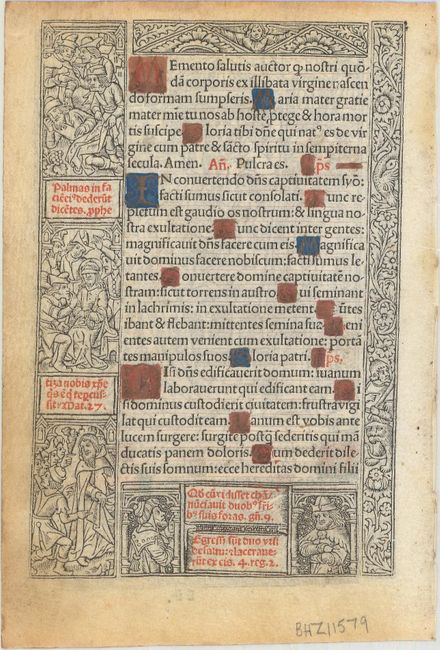 Memento salutis auctor ꝙ nostri quõ-
dã corporis ex illibata virgine nascen
do formam sumpseris. Maria mater gratie
mater mie tu nos ab hoste ptege & hora mor
tis suscipe. Gloria tibi dñe qui natꝰ es de vir
gine cum patre & sacto spiritu in sempiterna
secula. Amen. Añ. Pulcra es. ps
IN convertendo dñs captiuitatem syõ:
facti sumus sicut consolati. Tunc re-
pletum est gaudio os nostrum: & lingua no
stra exultatione. Tunc dicent inter gentes:
magnificauit dñs facere cum eis. Magnifica
uit dominus facere nobiscum: facti sumus le
tantes. Conuertere domine captiuitatẽ no-
stram: sicut torrens in austro. Qui seminant
in lachrimis: in exultatione metent. Eũtes
ibant & flebant: mittentes semina sua. Veni
entes autem venient cum exultatione: portã
tes manipulos suos. Gloria patri. ps.
NIsi dñs edificauerit domum: iuanum
laborauerunt qui edificant eam. Ni
si dominus custodierit ciuitatem: frustra vigi
lat qui custodit eam. Vanum est vobis ante
lucem surgere: surgite postꝗ̃ sederitis qui mã
ducatis panem doloris. Cum dederit dile-
ctis suis somnum: ecce hereditas domini filii
Palmas in fa
ciẽ eiꝰ dederũt
dicẽtes. pphe
tiza nobis xp̃e
qs ẽ q te percus-
sit. Mat. 27.
Qd cũ vidisset chã
nũciauit duobꝰ fri-
bꝰ suis foras. gñ. 9.
Egressi sũt duo vrsi
de saltu: & laceraue-
rũt ex eis. 4. reg. 2.
BHZ11579